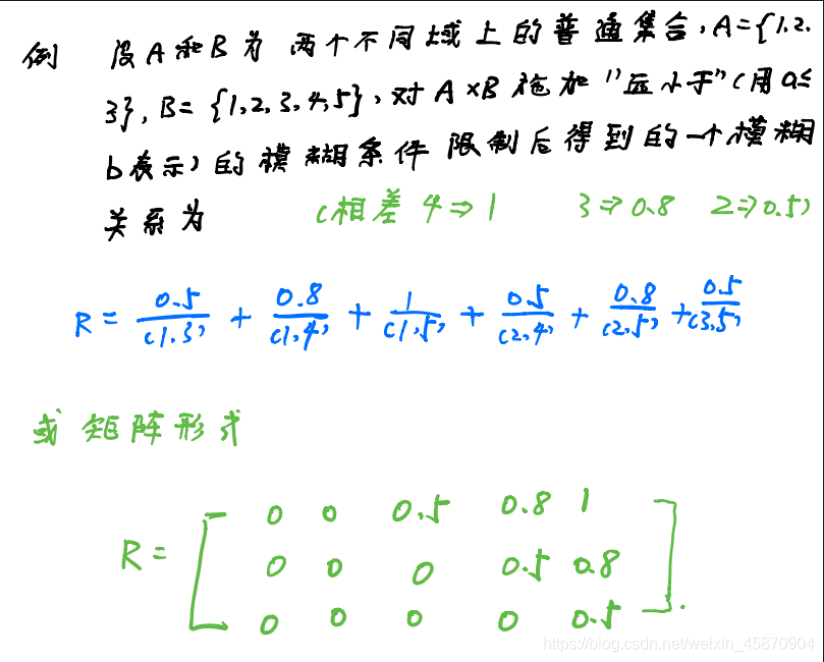 例 设A和B为两个不同域上的普通集合,A={1.2.
3},B={1,2,3,4,5},对A×B施加"远小于"(用a≤
b表示)的模糊条件限制后得到的一个模糊
关系为 (相差4⇒1 3⇒0.8 2⇒0.5)
R = 0.5/(1.3) + 0.8/(1,4) + 1/(1,5) + 0.5/(2,4) + 0.8/(2,5) + 0.5/(3,5)
或矩阵形式
0 0 0.5 0.8 1
R = [ 0 0 0 0.5 0.8 ].
0 0 0 0 0.5
https://blog.csdn.net/weixin_45870904